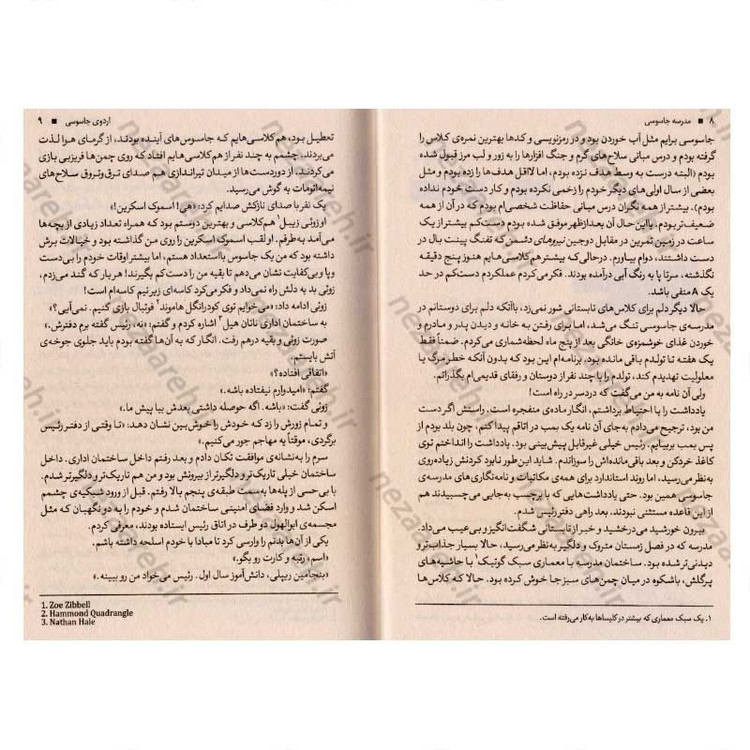 ۸ ■ مدرسه جاسوسی
جاسوسی برایم مثل آب خوردن بود و در رمزنویسی و کدها بهترین نمره‌ی کلاس را
گرفته بودم و درس مبانی سلاح‌های گرم و جنگ افزارها را به زور و لب مرز قبول شده
بودم (البته درست به وسط هدف نزده بودم، اما لااقل هدف‌ها را زده بودم و مثل
بعضی از سال اولی‌های دیگر خودم را زخمی نکرده بودم و کار دست خودم نداده
بودم). بیشتر از همه نگران درس مبانی حفاظت شخصی‌ام بودم که در آن از همه
ضعیف‌تر بودم. با این حال آن بعدازظهر موفق شده بودم دست‌کم بیشتر از یک
ساعت در زمین تمرین در مقابل دوجین نیروهای دشمن که تفنگ پینت بال در
دست داشتند، دوام بیاورم. درحالی‌که بیشتر هم‌کلاسی‌هایم هنوز پنج دقیقه
نگذشته، سرتا پا به رنگ آبی درآمده بودند. فکر می‌کردم عملکردم دست‌کم در حد
یک A منفی باشد.
حالا دیگر دلم برای کلاس‌های تابستانی شور نمی‌زد، باآنکه دلم برای دوستانم در
مدرسه‌ی جاسوسی تنگ می‌شد، اما برای رفتن به خانه و دیدن پدر و مادرم و
خوردن غذای خوشمزه‌ی خانگی بعد از پنج ماه لحظه‌شماری می‌کردم. ضمناً فقط
یک هفته تا تولدم باقی مانده بود. برنامه‌ام این بود که بدون آنکه خطر مرگ یا
معلولیت تهدیدم کند، تولدم را با چند نفر از دوستان و رفقای قدیمی‌ام بگذرانم.
ولی آن نامه به من می‌گفت که دردسر در راه است!
یادداشت را با احتیاط برداشتم، انگار ماده‌ی منفجره است. راستش اگر دست
من بود، ترجیح می‌دادم به‌جای آن نامه یک بمب در اتاقم پیدا کنم، چون بلد بودم از
پس بمب بربیایم. رئیس خیلی غیرقابل پیش‌بینی بود. یادداشت را انداختم توی
کاغذ خردکن و بعد باقی‌مانده‌اش را سوزاندم. شاید این‌طور نابود کردنش زیاده‌روی
به‌نظر می‌رسید، اما روند استاندارد برای همه‌ی مکاتبات و نامه‌نگاری‌های مدرسه‌ی
جاسوسی همین بود. حتی یادداشت‌هایی که با برچسب به‌جایی می‌چسبیدند هم
از این قاعده مستثنی نبودند. بعد راهی دفتر رئیس شدم.
بیرون خورشید می‌درخشید و خبر از تابستانی شگفت‌انگیز و بی‌عیب می‌داد.
مدرسه که در فصل زمستان متروک و دلگیر به‌نظر می‌رسید، حالا بسیار جذاب‌تر و
دیدنی‌تر شده بود. ساختمان مدرسه با معماری سبک گوتیک۱ با حاشیه‌های
پرگلش، باشکوه در میان چمن‌های سبز جا خوش کرده بود. حالا که کلاس‌ها
۱. یک سبک معماری که بیشتر در کلیساها به‌کار می‌رفته است.
اردوی جاسوسی ■ ۹
تعطیل بود، هم‌کلاسی‌هایم که جاسوس‌های آینده بودند، از گرمای هوا لذت
می‌بردند. چشمم به چند نفر از هم‌کلاسی‌هایم افتاد که روی چمن‌ها فریزبی بازی
می‌کردند. از دوردست‌ها از میدان تیراندازی هم صدای ترق‌وتروق سلاح‌های
نیمه‌اتومات به گوش می‌رسید.
یک نفر با صدای نازکش صدایم کرد: «هی! اسموک اسکرین!»
او زوئی زیبل۱ هم‌کلاسی و بهترین دوستم بود که همراه تعداد زیادی از بچه‌ها
می‌آمد به‌طرفم. او لقب اسموک اسکرین را روی من گذاشته بود و خیالات برش
داشته بود که من یک جاسوس بااستعداد هستم، اما بیشتر اوقات خودم را بی‌دست
وپا و بی‌کفایت نشان می‌دهم تا بقیه من را دست‌کم بگیرند! هربار که گند می‌زدم،
زوئی بد به دلش راه نمی‌داد و فکر می‌کرد کاسه‌ای زیر نیم کاسه‌ام است!
زوئی ادامه داد: «می‌خوایم توی کودرانگل هاموند۲ فوتبال بازی کنیم. نمی‌آیی؟»
به ساختمان اداری ناتان هیل۳ اشاره کردم و گفتم: «نه، رئیس گفته برم دفترش.»
صورت زوئی و بقیه درهم رفت. انگار که به آن‌ها گفته بودم باید جلوی جوخه‌ی
آتش بایستم.
«اتفاقی افتاده؟»
گفتم: «امیدوارم نیفتاده باشه.»
زوئی گفت: «باشه. اگه حوصله داشتی بعدش بیا پیش ما.»
و تمام زورش را زد که خودش را خوش‌بین نشان دهد: «تا وقتی از دفتر رئیس
برگردی، موقتاً یه مهاجم جور می‌کنیم.»
سرم را به‌نشانه‌ی موافقت تکان دادم و بعد رفتم داخل ساختمان اداری. داخل
ساختمان خیلی تاریک‌تر و دلگیرتر از بیرونش بود و من هم تاریک‌تر و دلگیرتر شدم.
با بی‌حسی از پله‌ها به‌سمت طبقه‌ی پنجم بالا رفتم. قبل از ورود شبکیه‌ی چشمم
اسکن شد و وارد فضای امنیتی ساختمان شدم و خودم را به دو نگهبان که مثل
مجسمه‌ی ابوالهول دو طرف در اتاق رئیس ایستاده بودند، معرفی کردم.
یکی از آن‌ها بدنم را وارسی کرد تا مبادا با خودم اسلحه داشته باشم.
«اسم، رتبه و کارت رو بگو.»
«بنجامین ریپلی، دانش‌آموز سال اول. رئیس می‌خواد من رو ببینه.»
1. Zoe Zibbell
2. Hammond Quadrangle
3. Nathan Hale
nezaareh.ir